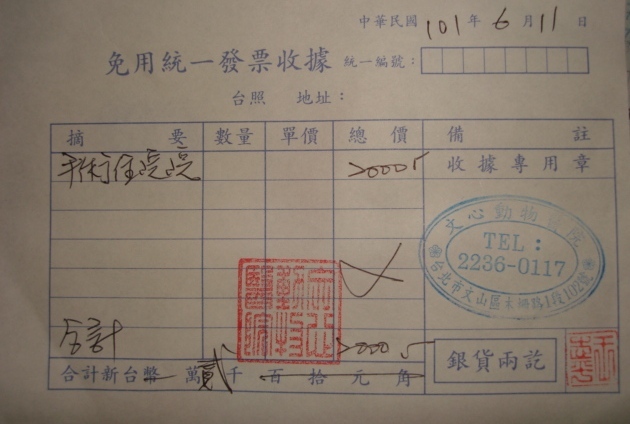 中華民國 101 年 6 月 11 日
免用統一發票收據 統一編號:
台照 地址:
摘要 數量 單價 總價 備註
手術住院 20005 收據專用章
文心動物醫院
TEL:
2236-0117
台北市文山區木柵路1段102號
合計 20005
合計新台幣 萬 貳 千 百 拾 元 角
銀貨兩訖